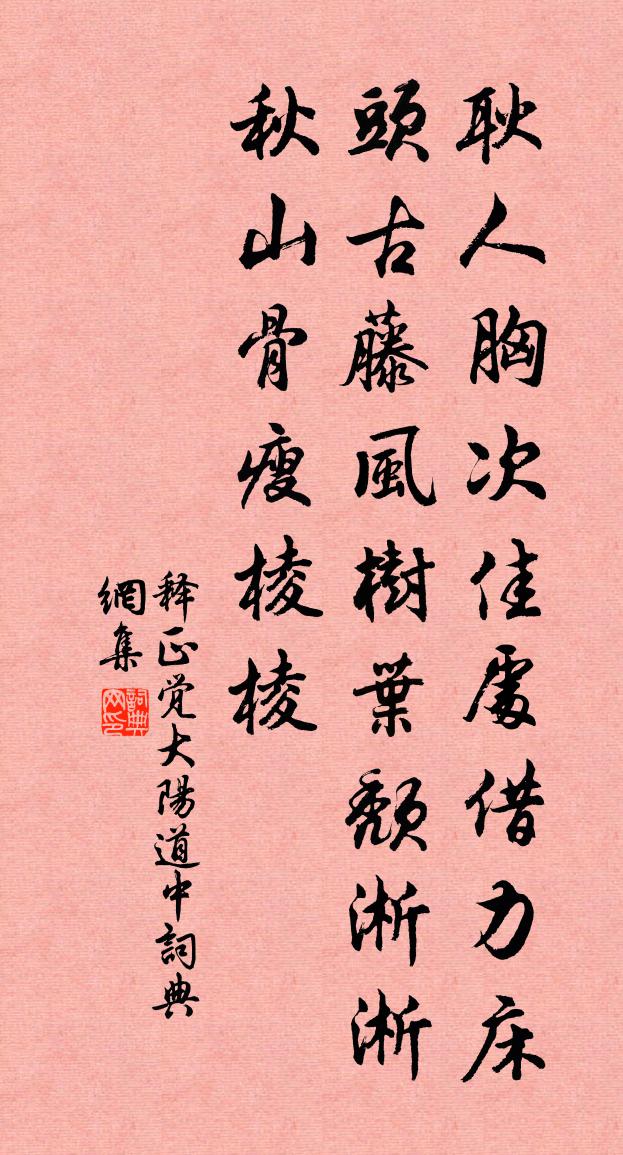 耿人胸次佳處借力床
頭古藤風樹葉頽淅淅
秋山骨瘦棱棱
释正觉大陽道中詞典
網集
詞典
网印